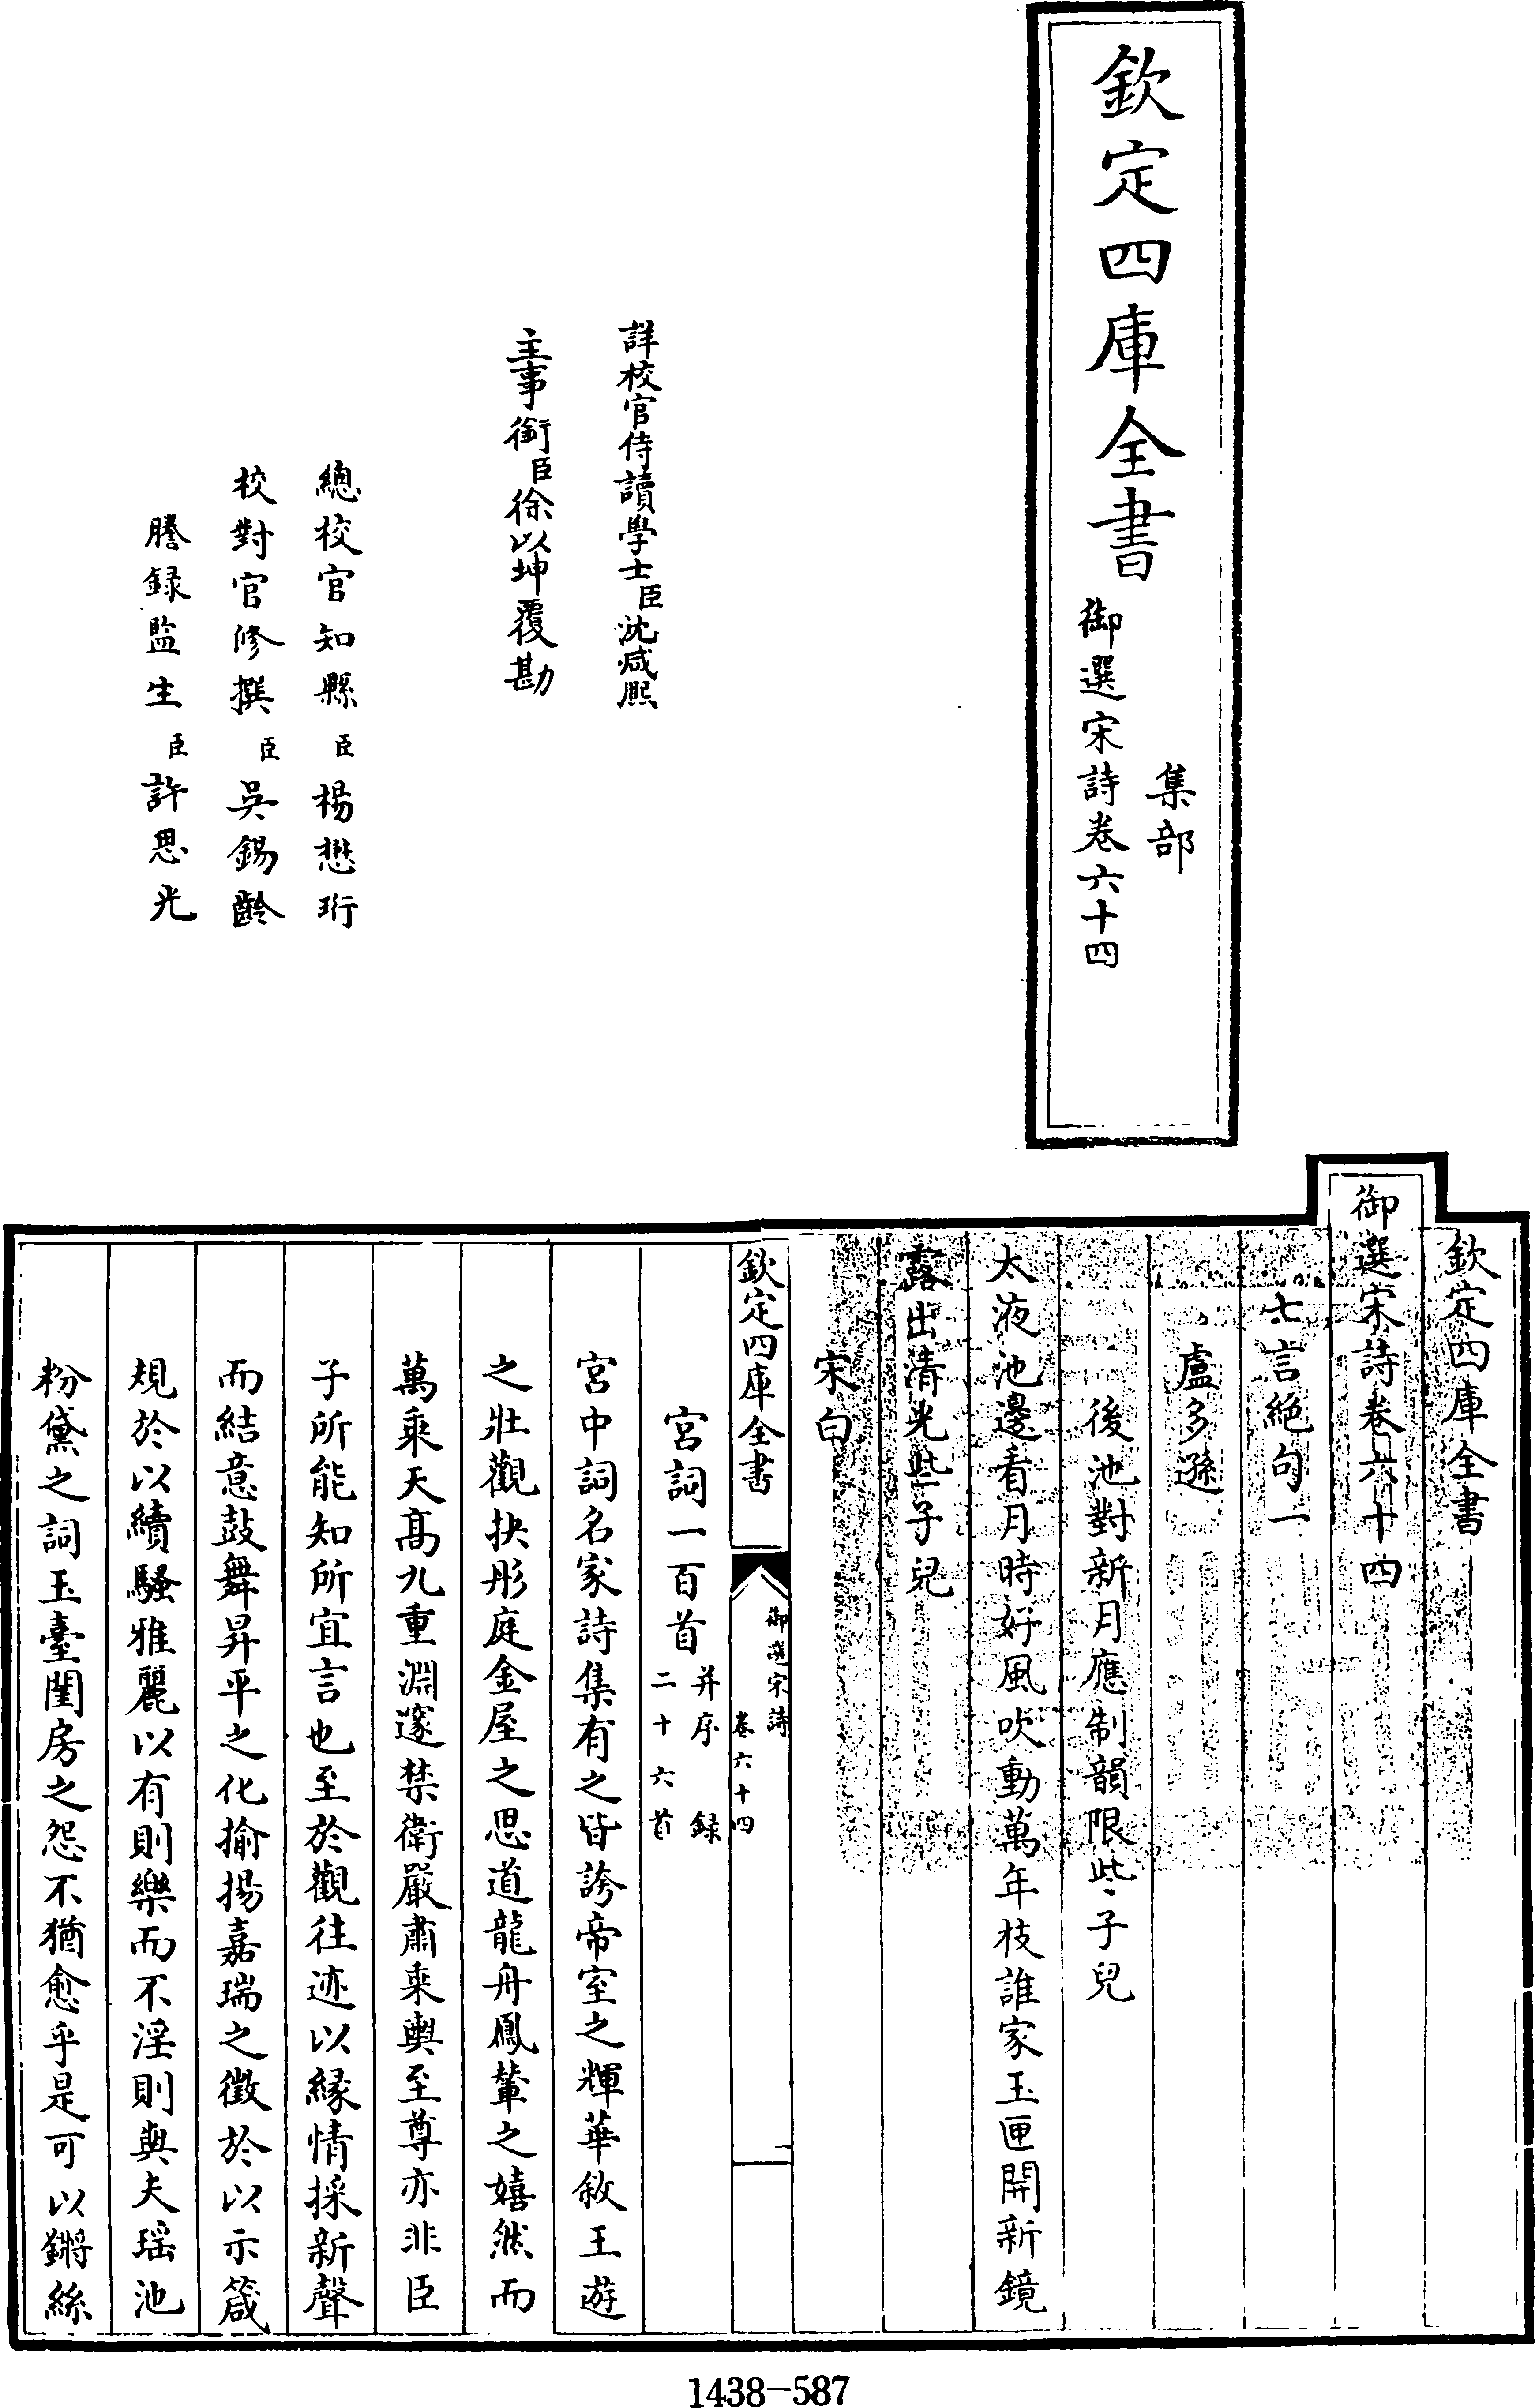 欽定四庫全書
集部
御選宋詩卷六十四
詳校官侍讀學士臣沈咸熙
主事銜臣徐以坤覆勘
總校官知縣臣楊懋珩
校對官修撰臣吳錫齡
謄録監生臣許思光
欽定四庫全書
御選宋詩卷六十四
七言絶句一
盧多遜
後池對新月應制韻限些子兒
太液池邊看月時好風吹動萬年枝誰家玉匣開新鏡
露出清光些子兒
宋白
欽定四庫全書
御選宋詩
卷六十四
宮詞一百首并序 録二十六首
宮中詞名家詩集有之皆誇帝室之輝華敘王遊
之壯觀抉彤庭金屋之思道龍舟鳳輦之嬉然而
萬乘天髙九重淵邃禁衛嚴肅乘輿至尊亦非臣
子所能知所宜言也至於觀往迹以縁情採新聲
而結意鼓舞昇平之化揄揚嘉瑞之徵於以示箴
規於以續騷雅麗以有則樂而不淫則與夫瑶池
粉黛之詞玉臺閨房之怨不猶愈乎是可以鏘絲
1438-587